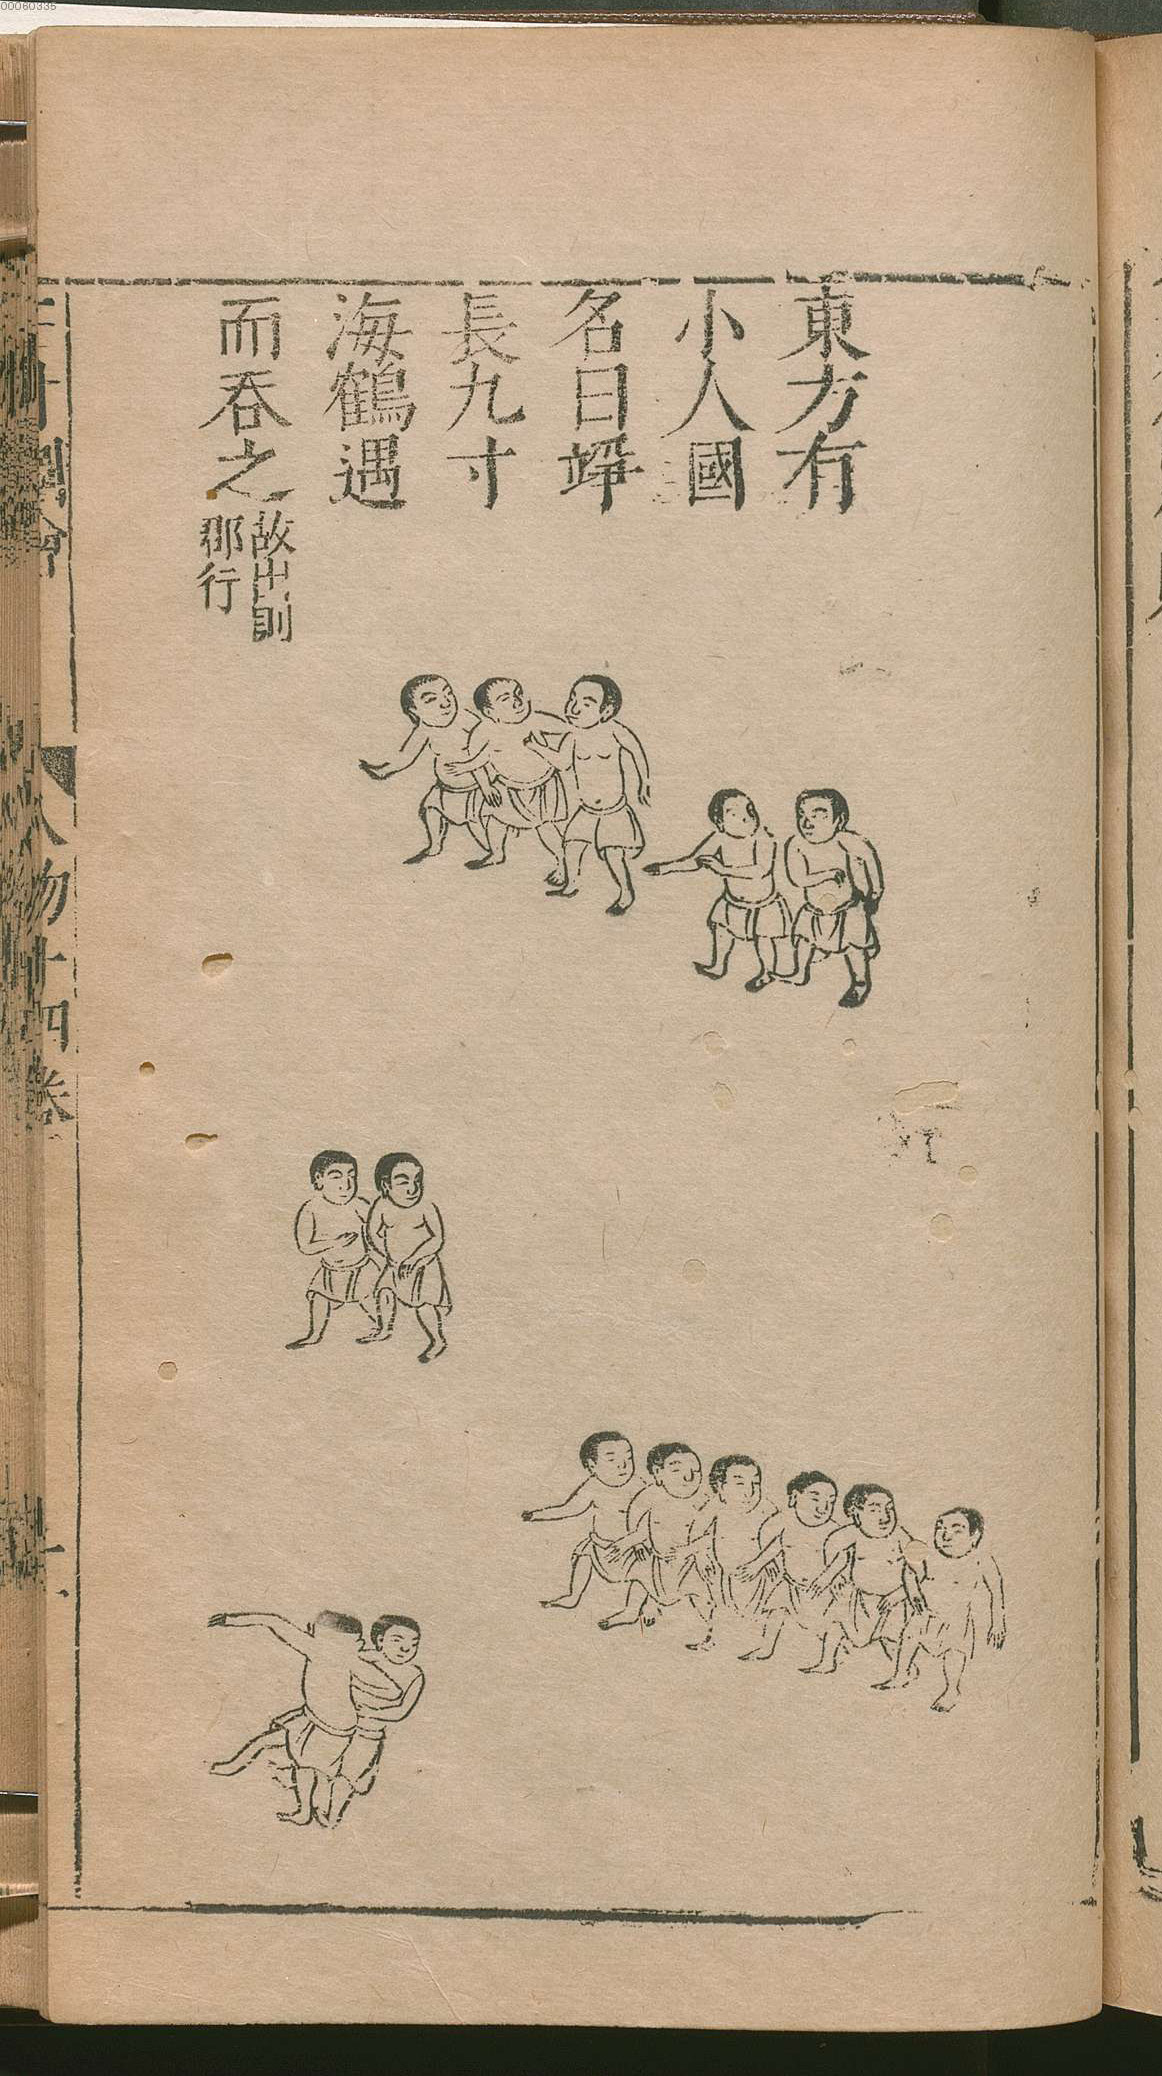 東方有
小人國
名曰竫
長九寸
海鶴遇
而吞之
故出則
郡行
人物十四卷
00060335